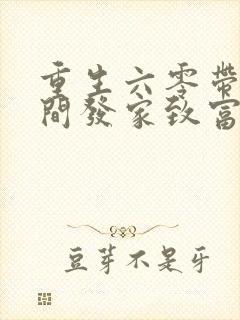 重生六零帶
間發家致富
豆芽不是牙